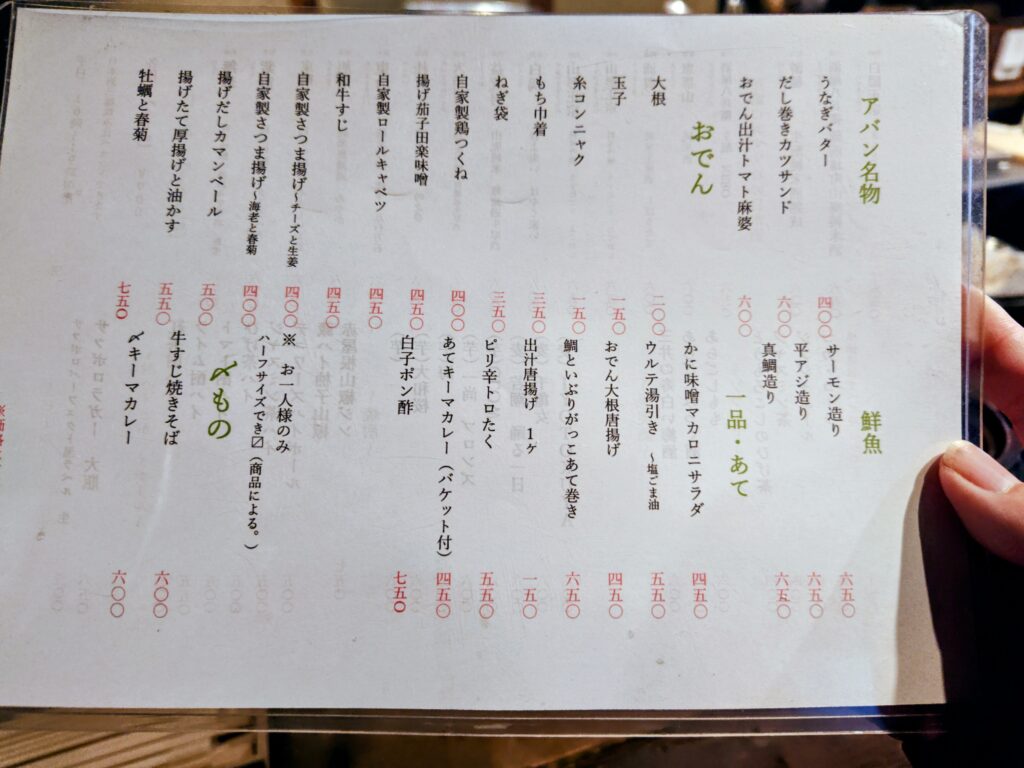 アバン名物
うなぎバター 四〇〇
だし巻きカツサンド 六〇〇
おでん出汁トマト麻婆 六〇〇
おでん
大根 二〇〇
玉子 一五〇
糸コンニャク 一五〇
もち巾着 三五〇
ねぎ袋 三五〇
自家製鶏つくね 四〇〇
揚げ茄子田楽味噌 四五〇
自家製ロールキャベツ 四五〇
和牛すじ 四五〇
自家製さつま揚げ〜チーズと生姜 四〇〇
自家製さつま揚げ〜海老と春菊 四〇〇
揚げだしカマンベール 五〇〇
揚げたて厚揚げと油かす 五五〇
牡蠣と春菊 七五〇
鮮魚
サーモン造り 六五〇
平アジ造り 六五〇
真鯛造り 六五〇
一品・あて
かに味噌マカロニサラダ 四五〇
ウルテ湯引き 〜塩ごま油 五五〇
おでん大根唐揚げ 四五〇
鯛といぶりがっこあて巻き 六五〇
出汁唐揚げ 1ヶ 一五〇
ピリ辛トロたく 五五〇
あてキーマカレー（バケット付） 四五〇
白子ポン酢 七五〇
※ お一人様のみ
ハーフサイズでき〼（商品による。）
〆もの
牛すじ焼きそば 六〇〇
〆キーマカレー 六〇〇